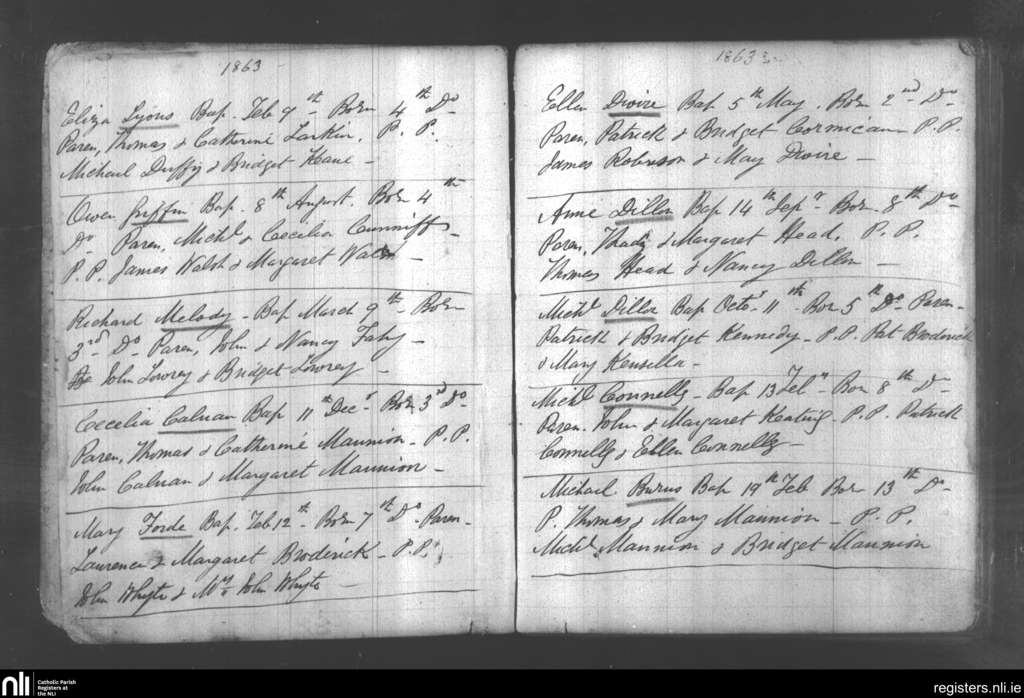 1863
Eliza Lyons Bap. Feb 9th Born 4th Do
Paren, Thomas & Catherine Larkin. P. P.
Michael Duffy & Bridget Keane —
Owen Griffin Bap. 8th August. Born 4th
Do Paren, Michl & Cecilia Cunniff —
P. P. James Walsh & Margaret
Richard Melody — Bap March 9th — Born
3rd Do Paren, John & Nancy Fahy —
John Lowrey & Bridget Lowrey —
Cecelia Calnan Bap 11th Decr Born 3d Do
Paren, Thomas & Catherine Mannion — P. P.
John Calnan & Margaret Mannion —
Mary Forde Bap. Feb 12th — Born 7th Do Paren —
Laurence & Margaret Broderick — P. P.
John Whyte & Mrs John Whyte —
1863
Ellen Divire Bap 5th May. Born 2nd Do —
Paren, Patrick & Bridget Cormican P. P.
James Robinson & May Divire —
Anne Dillon Bap 14th Sepr Born 8th Do —
Paren, Thady & Margaret Head, P. P.
Thomas Head & Nancy Dillon —
Michl Dillon Bap Octr 11th Bor 5th Do Paren —
Patrick & Bridget Kennedy — P. P. Pat Broderick
& Mary Kensella —
Michl Connelly — Bap 13 Feb Bor 8th Do —
Paren. John & Margaret Keating — P. P. Patrick
Connelly & Ellen Connelly —
Michael Burns Bap 19th Feb Bor 13th Do —
P. Thomas & Mary Mannion — P. P.
Michl Mannion & Bridget Mannion
nli
Catholic Parish
Registers at
the NLI
registers.nli.ie